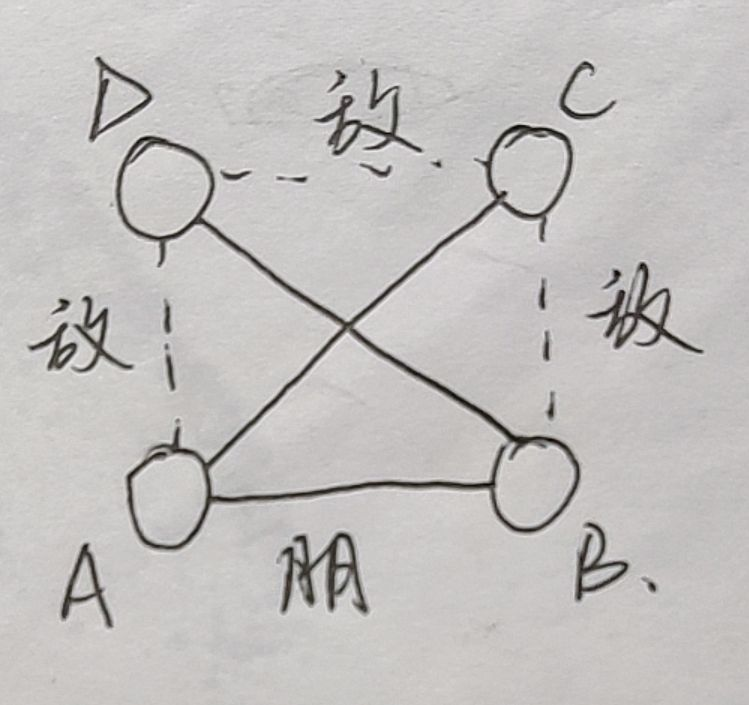 D 敌 C
敌 敌
A 朋 B.